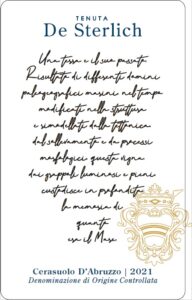 TENUTA
De Sterlich
Una terra e il suo passato
Risultato di differenti domini
paleogeografici marini nel tempo
modificato nella struttura
e rimodellato dalla tettonica
dal sollevamento e da processi
morfologici questa vigna
dai grappoli luminosi e pieni
custodisce in profondità
la memoria di
quanto
era il Mare
Cerasuolo D'Abruzzo | 2021
Denominazione di Origine Controllata